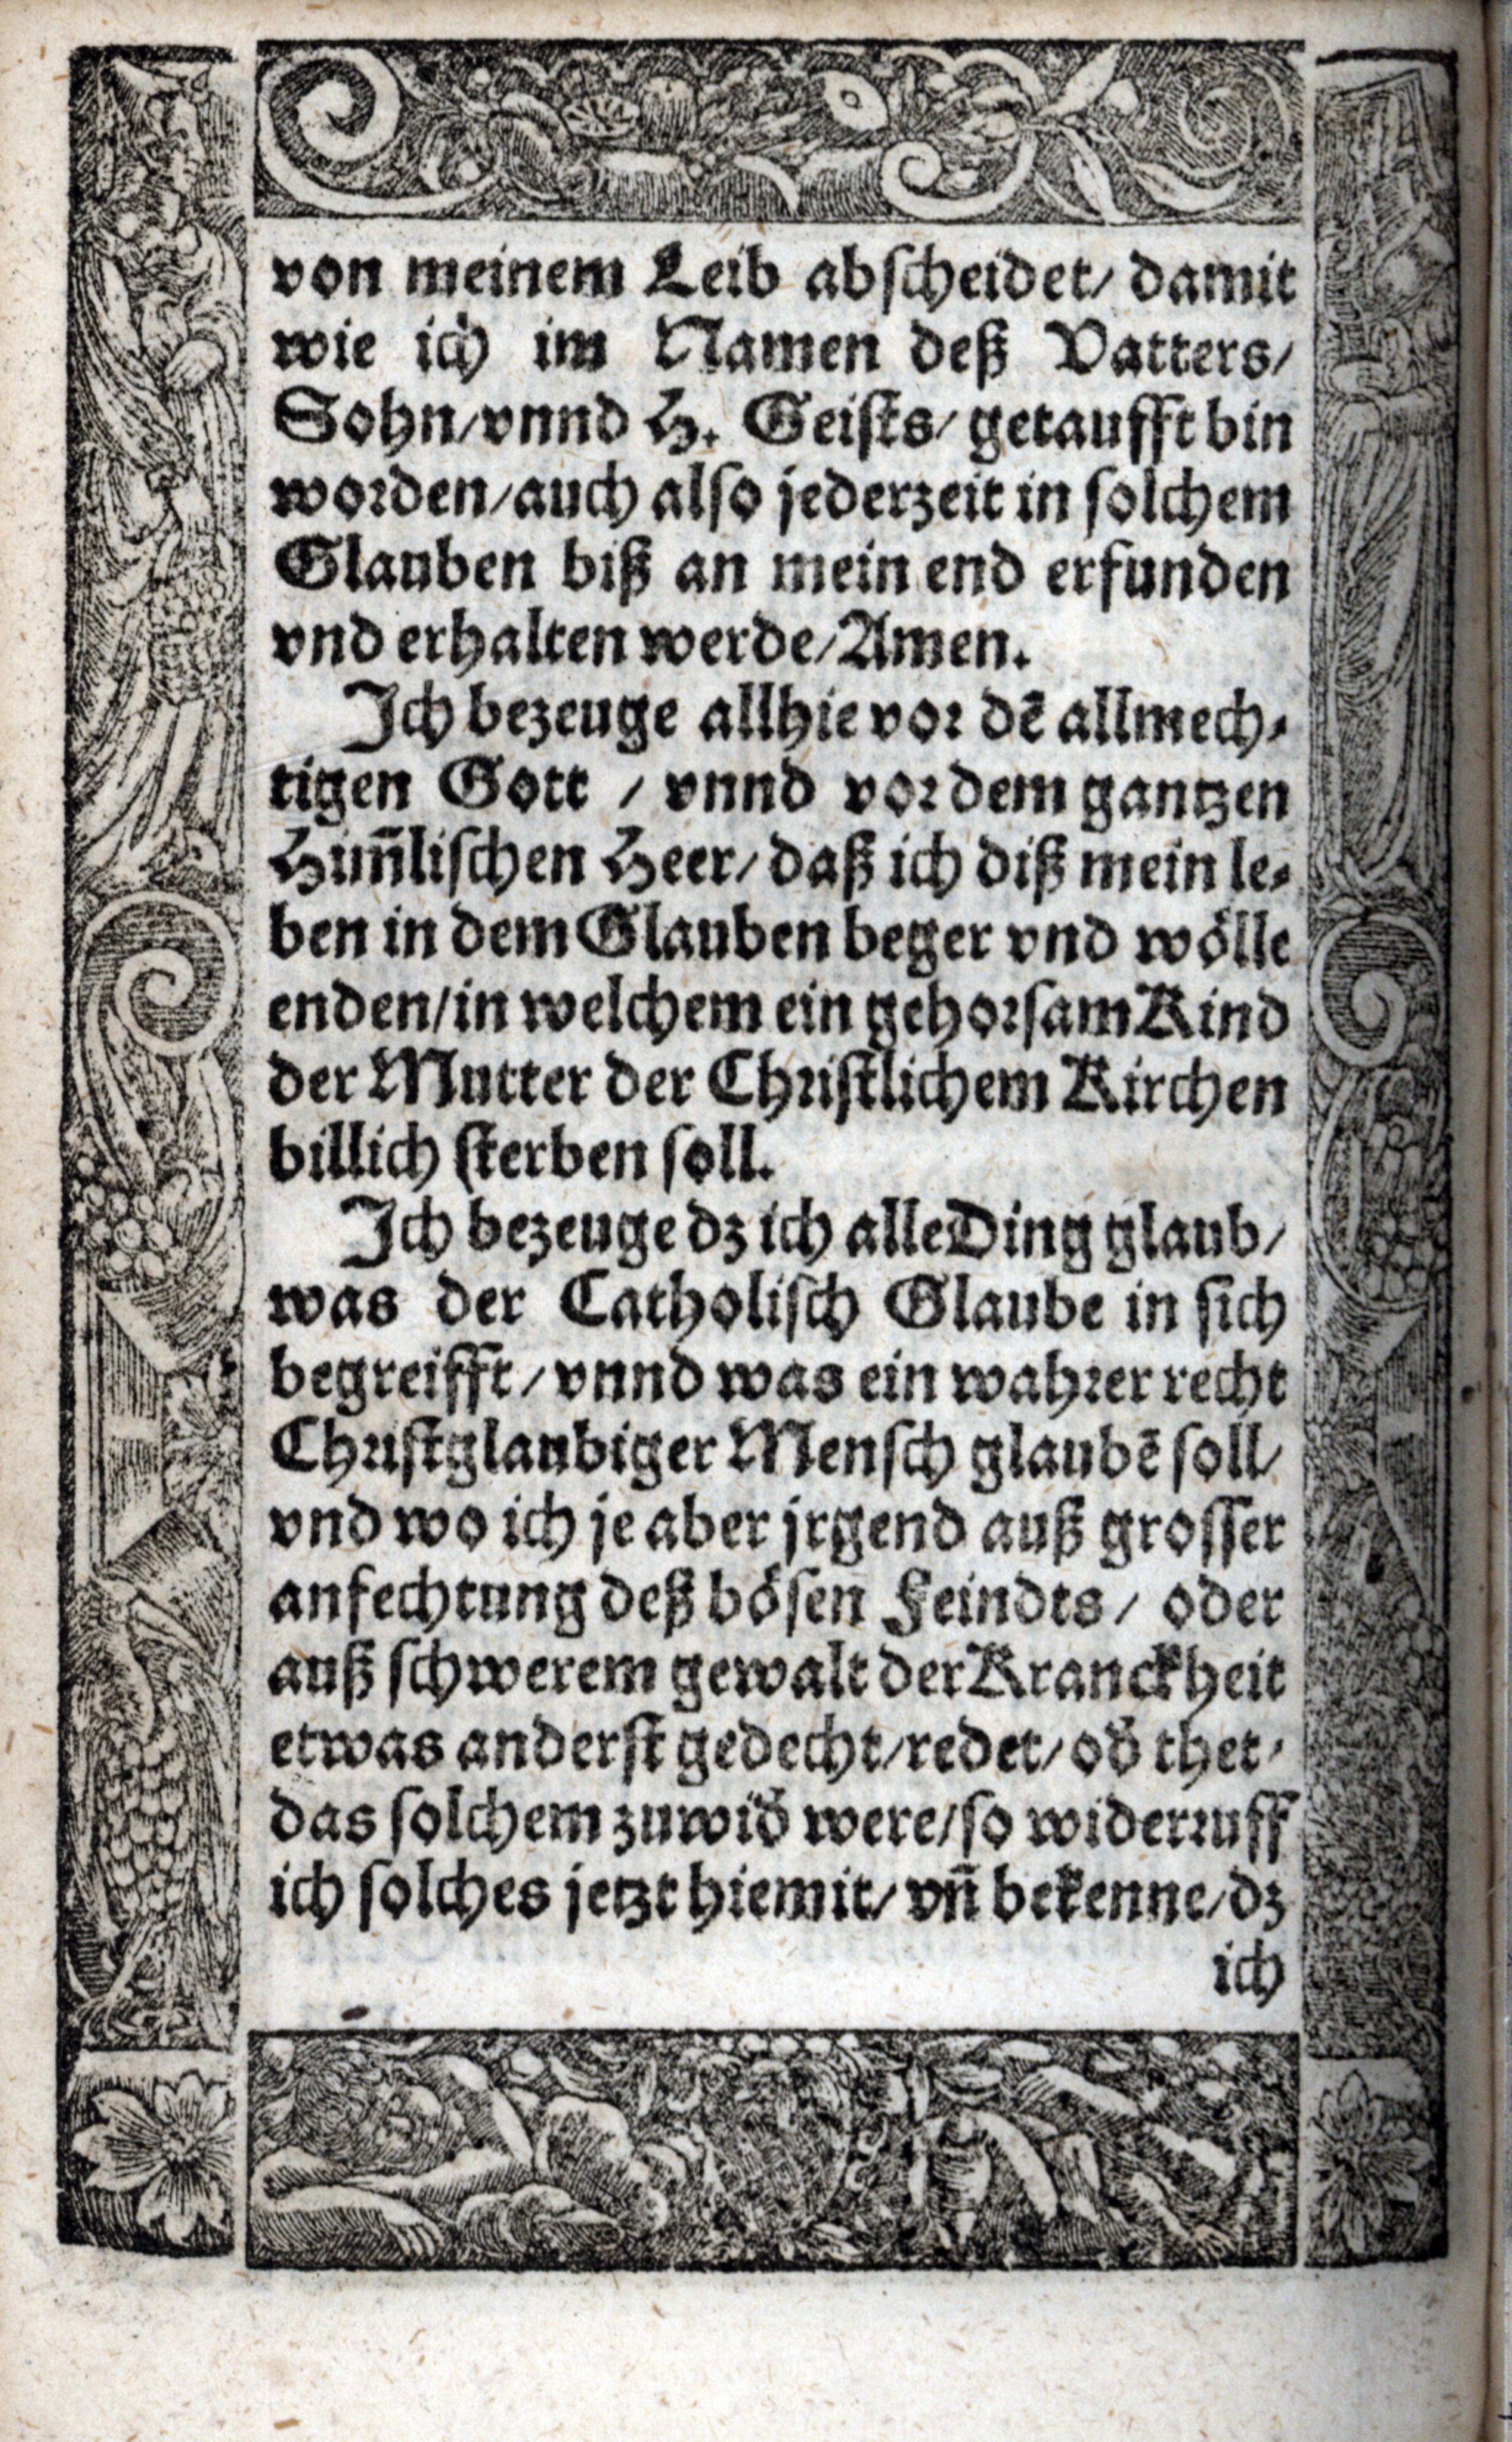 von meinem Leib abscheidet/ damit
wie ich im Namen deß Vatters/
Sohn/vnnd H. Geists/ getaufft bin
worden/auch also jederzeit in solchem
Glauben biß an mein end erfunden
vnd erhalten werde/Amen.
Ich bezeuge allhie vor dē allmech-
tigen Gott / vnnd vor dem gantzen
Him̄lischen Heer/ daß ich diß mein le-
ben in dem Glauben beger vnd wölle
enden/in welchem ein gehorsam Kind
der Mutter der Christlichem Kirchen
billich sterben soll.
Ich bezeuge dz ich alle Ding glaub/
was der Catholisch Glaube in sich
begreifft/ vnnd was ein wahrer recht
Christglaubiger Mensch glaubē soll/
vnd wo ich je aber jrgend auß grosser
anfechtung deß bösen Feindts/ oder
auß schwerem gewalt der Kranckheit
etwas anderst gedecht/redet/ od̄ thet/
das solchem zuwid̄ were/so widerruff
ich solches jetzt hiemit/ vn̄ bekenne/dz
ich